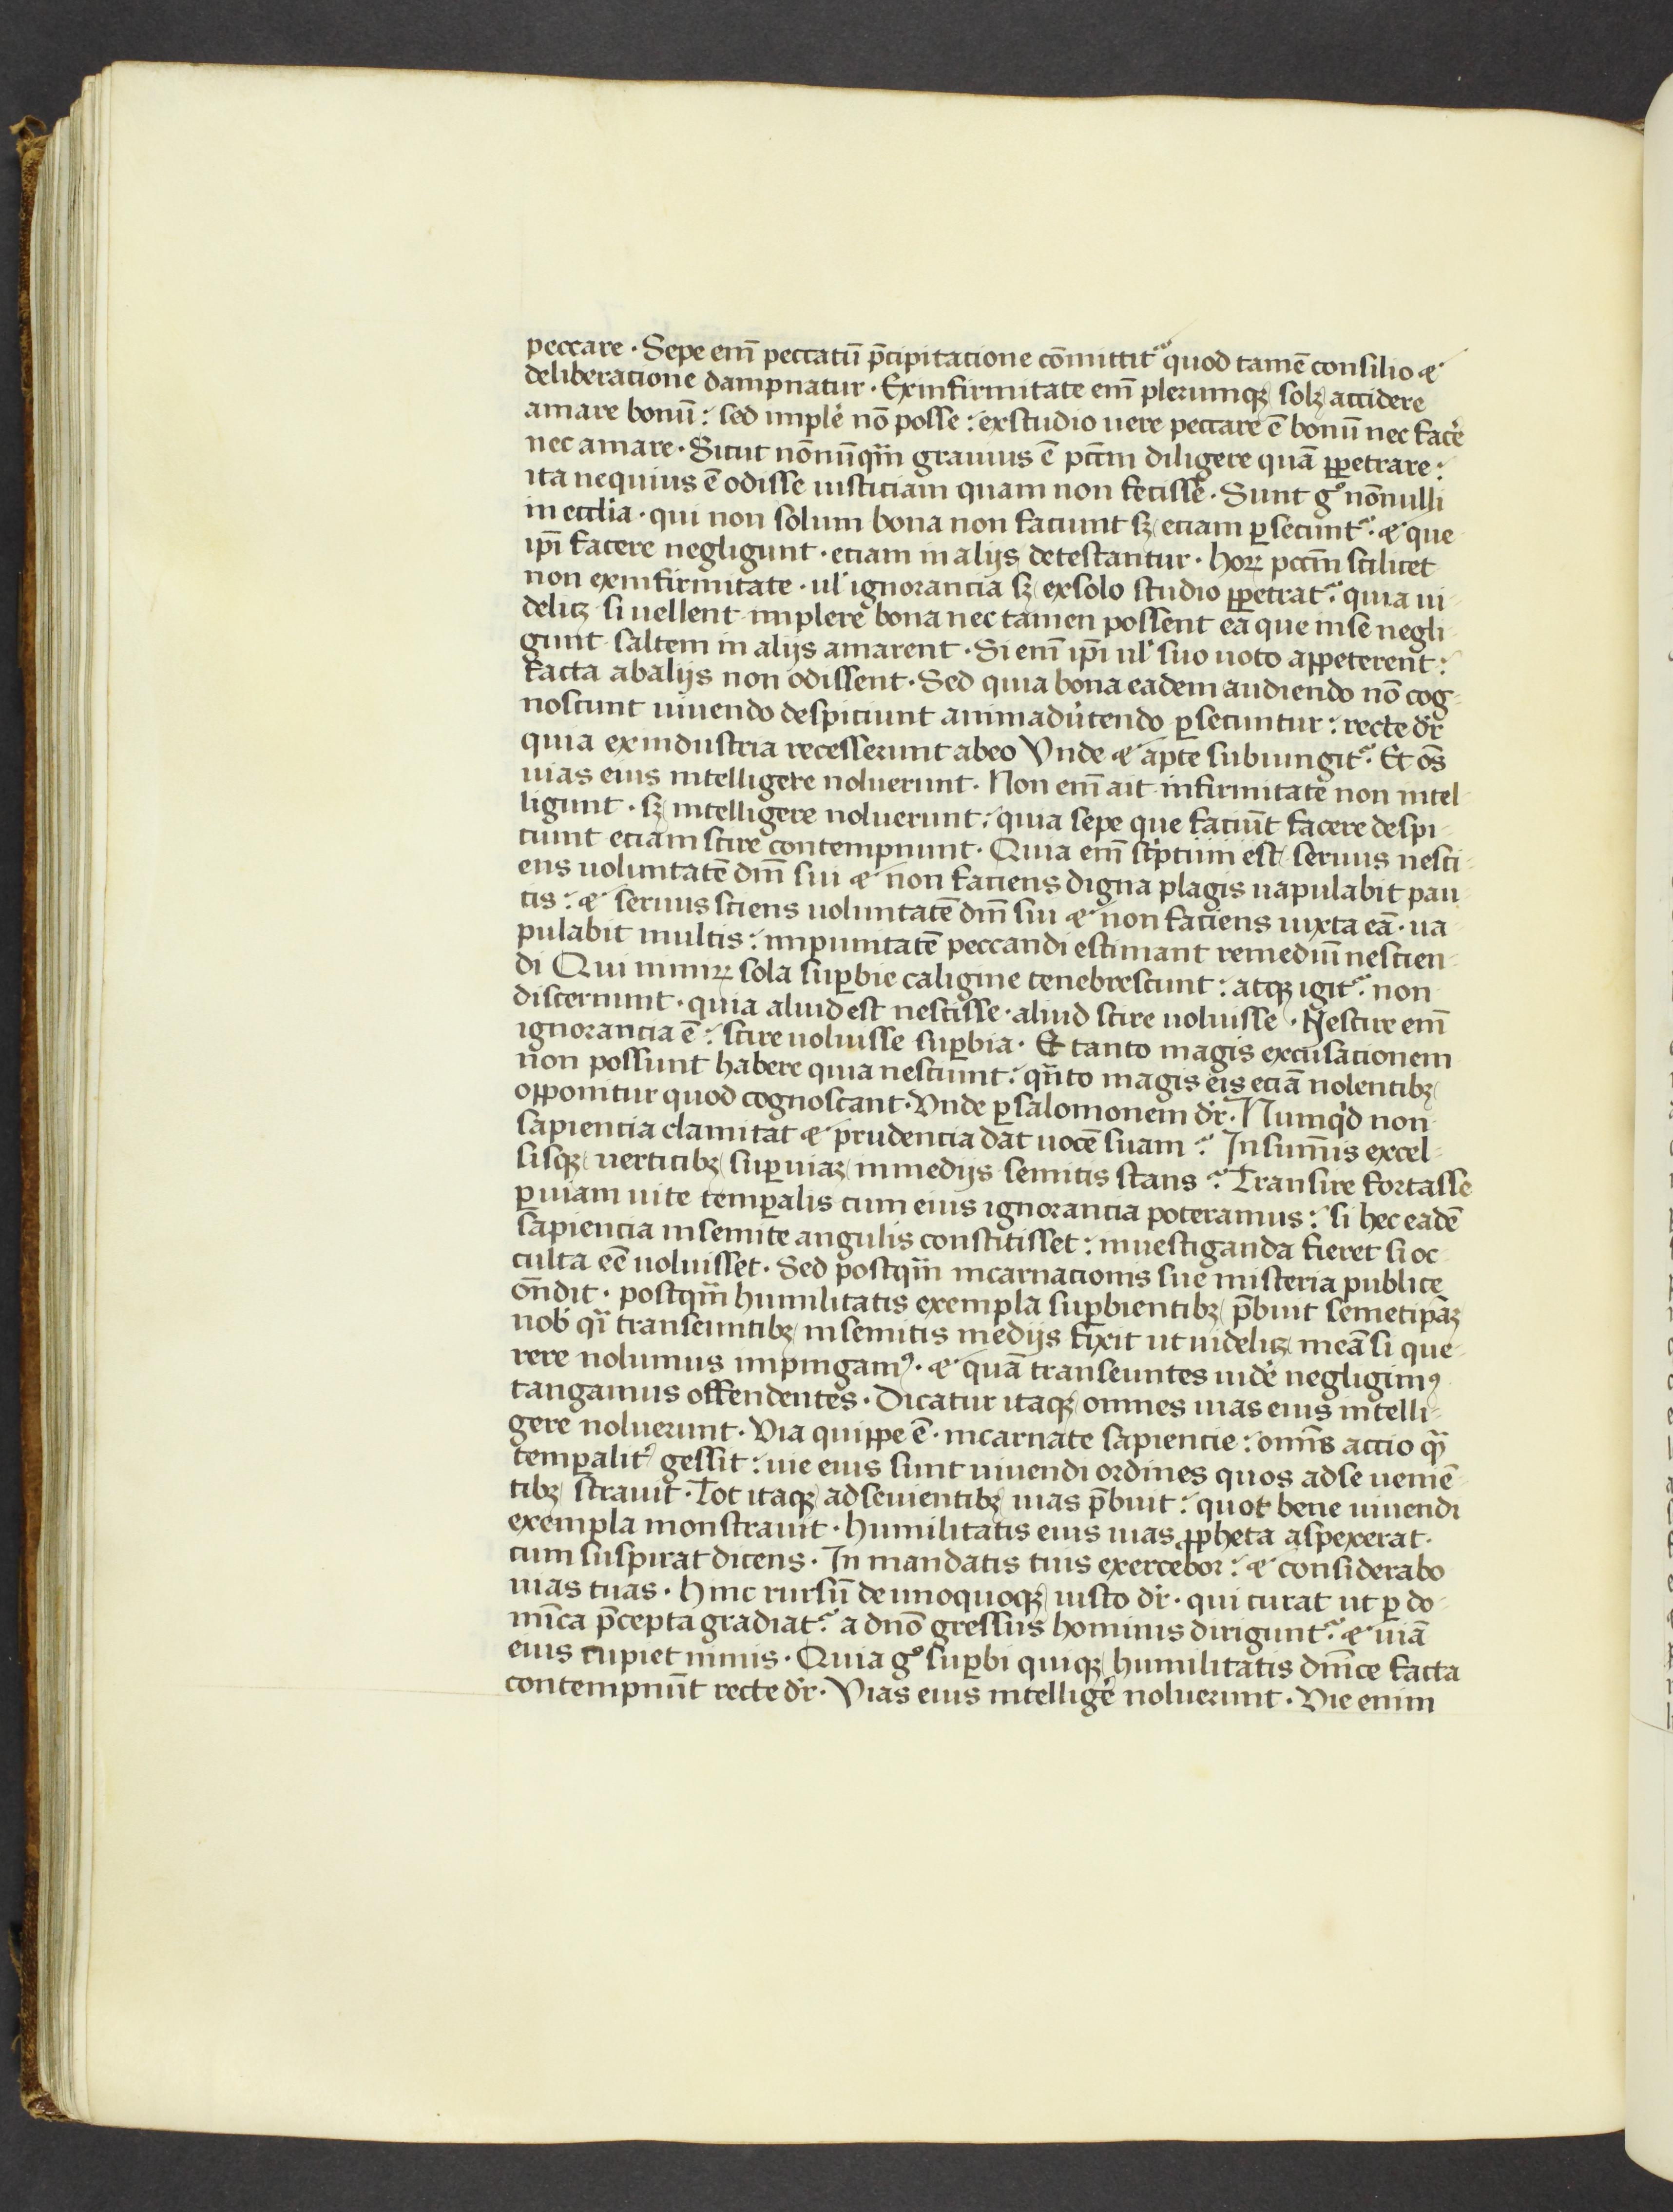 peccare · Sepe em̄ peccatū p̄cipitacione cōmittit᷑ quod tamē consilio ⁊
deliberacione dampnatur · Ex infirmitate em̄ plerumqꝫ solꝫ accidere
amare bonū : sed implē nō posse : ex studio uere peccare ē bonū nec facē
nec amare · Sicut nōnūqᷓm grauius ē pcc̄m diligere quā ꝑpetrare :
ita nequius ē odisse iusticiam quam non fecisse · Sunt gͦ nōnulli
in eccl̄ia · qui non solum bona non faciunt sꝫ eciam ꝑsecunt᷑ · ⁊ que
ip̄i facere negligunt · eciam in alijs detestantur · horꝝ pcc̄m scilicet
non ex infirmitate · ul̓ ignorancia sꝫ ex solo studio ꝑpetrat᷑ : quia ui-
delicꝫ si uellent implere bona nec tamen possent ea que in se negli-
gunt saltem in alijs amarent · Si em̄ ip̄i ul̓ suo uoto appeterent :
facta ab alijs non odissent · Sed quia bona eadem audiendo nō cog-
noscunt uiuendo despiciunt animadu̓tendo ꝑsecuntur : recte dr̄
quia ex industria recesserunt ab eo Vnde ⁊ apte subiungit᷑ · Et om̄s
uias eius intelligere noluerunt · Non em̄ ait infirmitate non intel-
ligunt · sꝫ intelligere noluerunt : quia sepe que faciūt facere despi-
ciunt eciam scire contempnunt · Quia em̄ scͥptum est seruus nesci-
ens uoluntatē dm̄ sui ⁊ non faciens digna plagis uapulabit pau
cis : ⁊ seruus sciens uoluntatē dm̄ sui ⁊ non faciens iuxta eā · ua-
pulabit multis : impunitatē peccandi estimant remediū nescien-
di Qui nimiꝝ sola suꝑbie caligine tenebrescunt : atqꝫ igit᷑ · non
discernunt · quia aliud est nescisse · aliud scire noluisse · Nescire em̄
ignorancia ē : scire noluisse suꝑbia · Et tanto magis excusacionem
non possunt habere quia nesciunt : qᷓnto magis eis eciā nolentibꝫ
opponitur quod cognoscant · Vnde ꝑ salomonem dr̄ · Numqͥd non
sapiencia clamitat ⁊ prudencia dat uocē suam : In sum̄is excel-
sisqꝫ uerticibꝫ suꝑ uiaꝫ in medijs semitis stans : Transire fortasse
ꝑ uiam uite temꝑalis cum eius ignorancia poteramus : si hec eadē
sapiencia in semite angulis constitisset : inuestiganda fieret si oc-
culta eē uoluisset · Sed postqᷓm incarnacionis sue misteria publice
on̄dit · postqᷓm humilitatis exempla suꝑbientibꝫ p̄buit semetip̄aꝫ
nob̓ qͣi transeuntibꝫ in semitis medijs fixit ut uidelicꝫ in eā si que-
rere nolumus impingamꝰ · ⁊ quā transeuntes uidē negligimꝰ
tangamus offendentes · Dicatur itaqꝫ omnes uias eius intelli-
gere noluerunt · Via quippe ē · incarnate sapiencie : om̄is accio qᷓ
temꝑalit̓ gessit : uie eius sunt uiuendi ordines quos ad se ueniē-
tibꝫ strauit · Tot itaqꝫ ad se uientibꝫ uias p̄buit : quot bene uiuendi
exempla monstrauit · humilitatis eius uias ꝓpheta aspexerat ·
cum suspirat dicens · In mandatis tuis exercebor : ⁊ considerabo
uias tuas · hinc rursū de unoquoqꝫ iusto dr̄ · qui curat ut ꝑ do-
mīca p̄cepta gradiat᷑ : a dn̄o gressus hominis dirigunt᷑ : ⁊ uiā
eius cupiet nimis · Quia gͦ suꝑbi quiqꝫ humilitatis dm̄ce facta
contempnūt recte dr̄ · Vias eius intelligē noluerunt · Vie enim